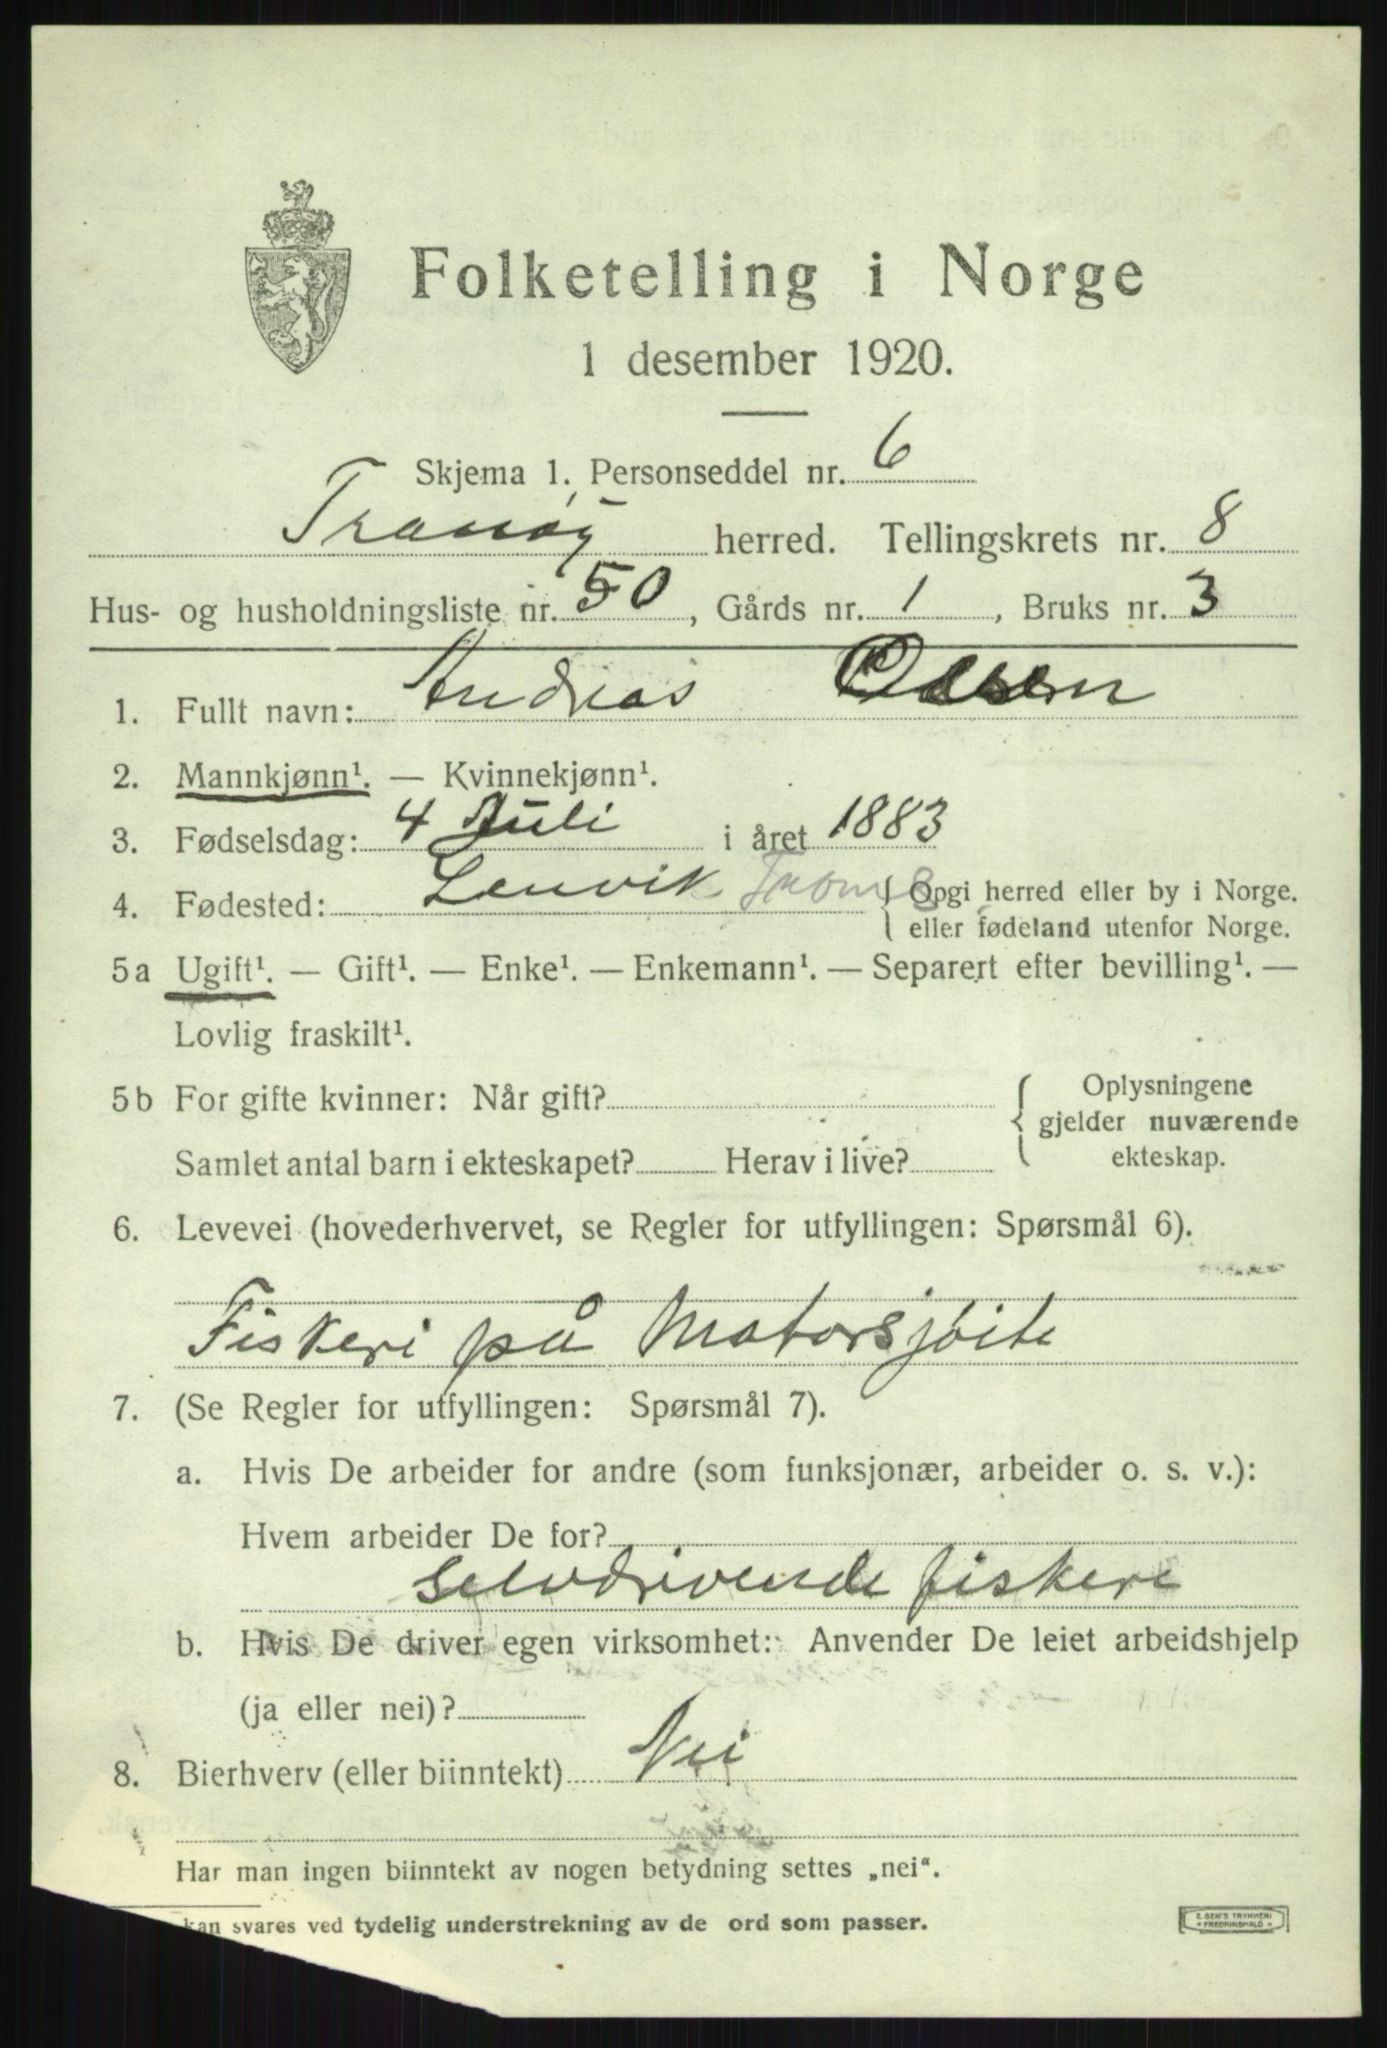 Folketelling i Norge
1 desember 1920.
Skjema 1. Personseddel nr. 6
Tranøy herred. Tellingskrets nr. 8
Hus- og husholdningsliste nr. 50, Gårds nr. 1, Bruks nr. 3
1. Fullt navn: Andreas Olsen
2. Mannkjønn¹. — Kvinnekjønn¹.
3. Fødselsdag: 4 Juli i året 1883
4. Fødested: Lenvik Troms { Opgi herred eller by i Norge.
eller fødeland utenfor Norge.
5a Ugift¹. — Gift¹. — Enke¹. — Enkemann¹. — Separert efter bevilling¹. —
Lovlig fraskilt¹.
5b For gifte kvinner: Når gift? { Oplysningene
gjelder nuværende
Samlet antal barn i ekteskapet? Herav i live? ekteskap.
6. Levevei (hovederhvervet, se Regler for utfyllingen: Spørsmål 6).
Fiskeri på Motorsjöite
7. (Se Regler for utfyllingen: Spørsmål 7).
a. Hvis De arbeider for andre (som funksjonær, arbeider o. s. v.):
Hvem arbeider De for?
selvdrivende fiskeri
b. Hvis De driver egen virksomhet: Anvender De leiet arbeidshjelp
(ja eller nei)?
8. Bierhverv (eller biinntekt) Nei
Har man ingen biinntekt av nogen betydning settes „nei“.
kan svares ved tydelig understrekning av de ord som passer.
E. SEM'S TRYKKERI
FREDRIKSHALD